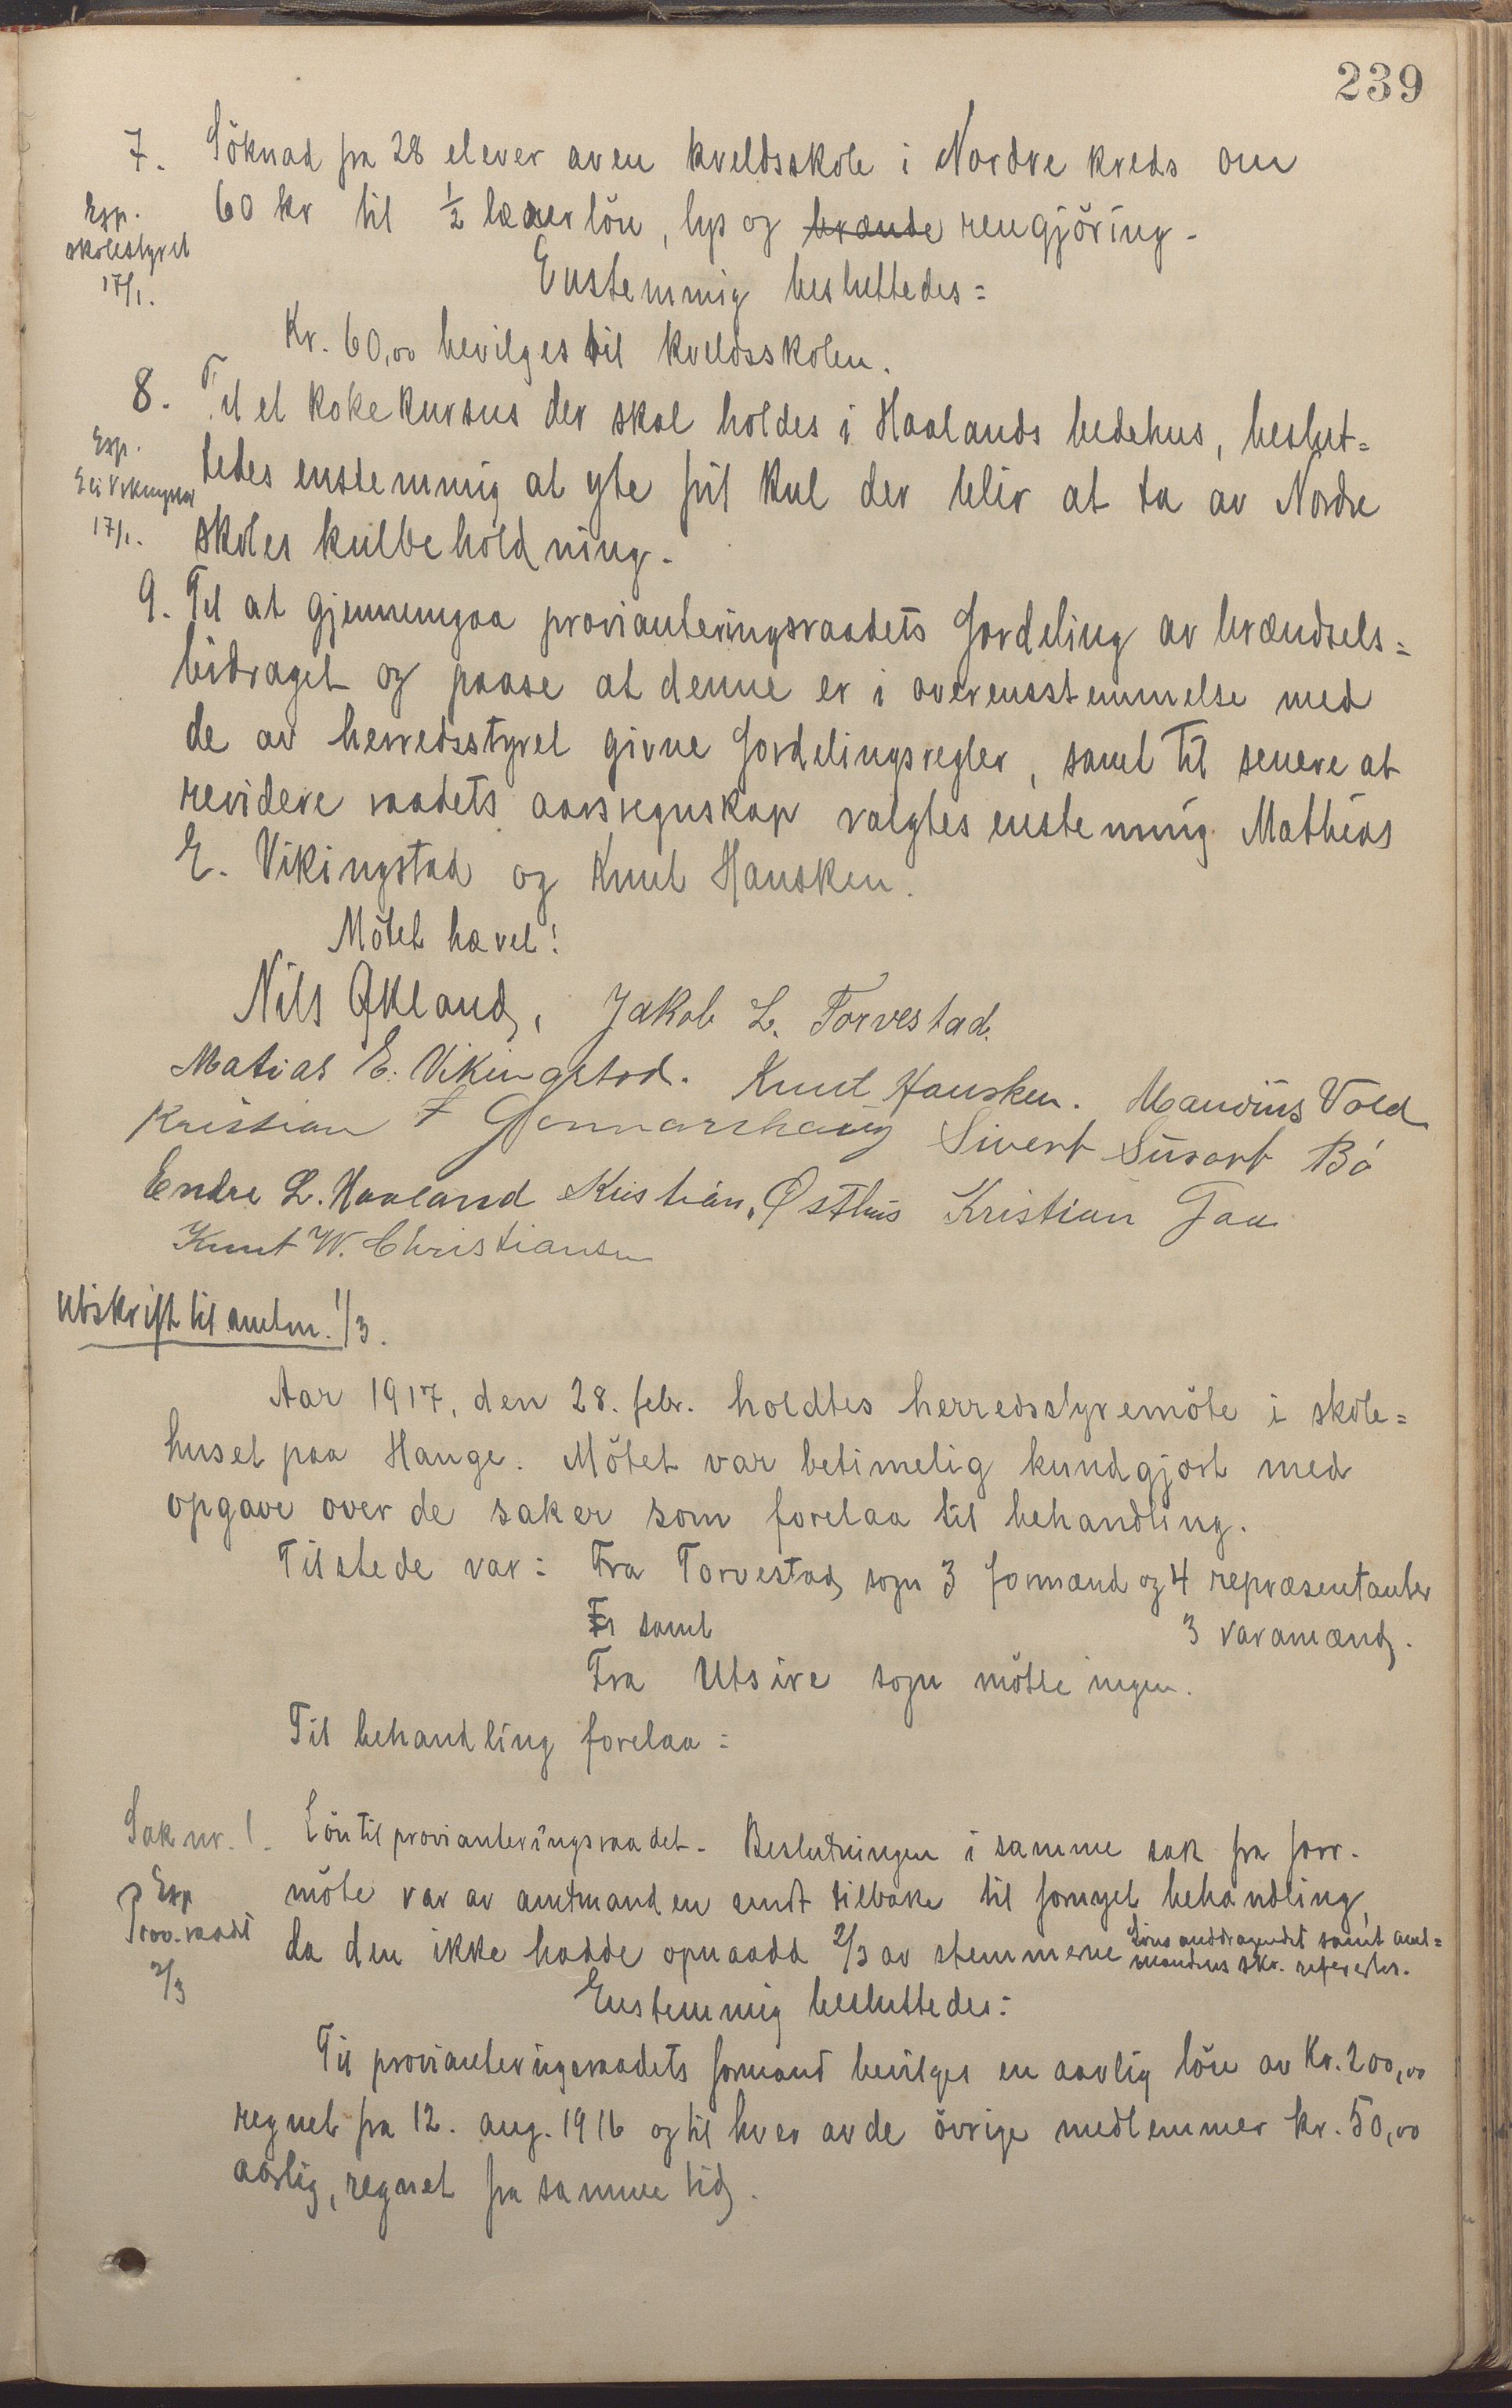 239
7. Söknad fra 28 elever av en kveldsskole i Nordre kreds om
Exp. skolestyret 17/1.
60 kr til ½ lærerlön, lys og brænde rengjöring.
Enstemmig besluttedes:
Kr. 60,00 bevilges til kveldsskolen.
8. Til et kokekursus der skal holdes i Haalands bedehus, beslut=
Exp. E. Vikingstad 17/1.
tedes enstemmig at yte frit kul der blir at ta av Nordre
skoles kulbeholdning.
9. Til at gjennemgaa provianteringsraadets fordeling av brændsels=
bidraget og paase at denne er i overensstemmelse med
de av herredsstyret givne fordelingsregler, samt til senere at
revidere raadets aarsregnskap valgtes enstemmig Mathias
E. Vikingstad og Knut Hausken.
Mötet hævet!
Nils Økland, Jakob L. Torvestad.
Matias E. Vikingstad. Knut Hausken. Mauvius Vold
Kristian F Gunnarshaug Sivert Bö
Endre L. Haaland Kristian Østhus Kristian Gaa
Knut W. Christiansen
Utskrift til amtm. 1/3.
Aar 1917, den 28. febr. holdtes herredsstyremöte i skole=
huset paa Hauge. Mötet var betimelig kundgjort med
opgave over de saker som forelaa til behandling.
Tilstede var: Fra Torvestad sogn 3 formænd og 4 repræsentanter
samt 3 varamænd.
Fra Utsire sogn mötte ingen.
Til behandling forelaa:
Sak nr. 1. Lön til provianteringsraadet. Beslutningen i samme sak fra forr.
Exp Prov.raadt 2/3
möte var av amtmanden sendt tilbake til fornyet behandling,
da den ikke hadde opnaadd 2/3 av stemmerne samt amt=
mandens skr. refereртes.
Enstemmig besluttedes:
Til provianteringsraadets formand bevilges en aarlig lön av Kr. 200,00
regnet fra 12. aug. 1916 og til hver av de övrige medlemmer kr. 50,00
aarlig, regnet fra samme tid.